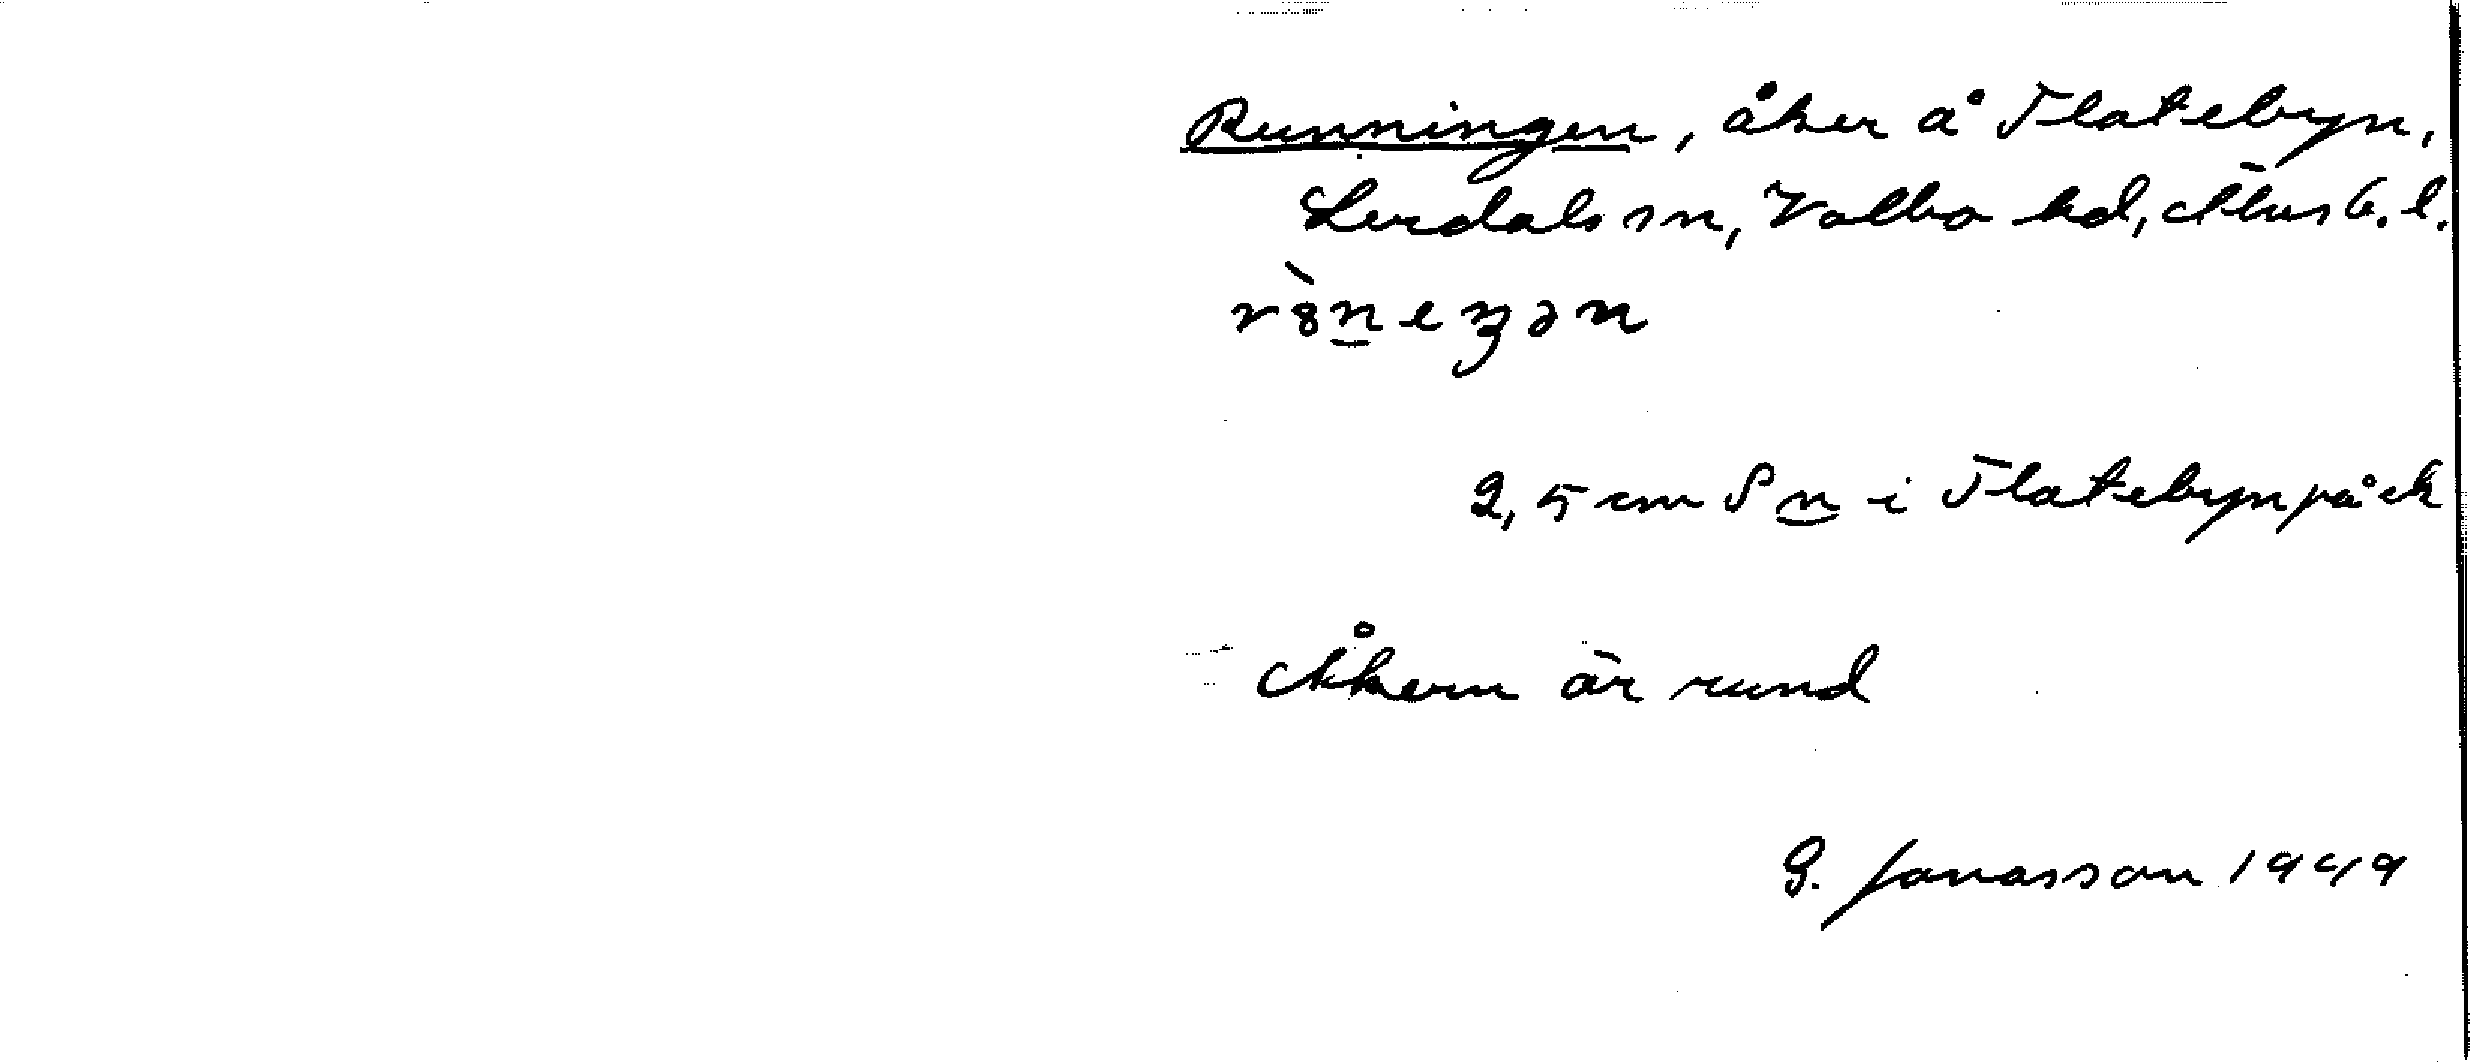 Runningen, åker å Flatebyn,
Lerdals sn, Valbo hd, Älvsb. l.
2,5 cm S n i Flatebyn på ek
Åkern är rund
G. Jonasson 1949